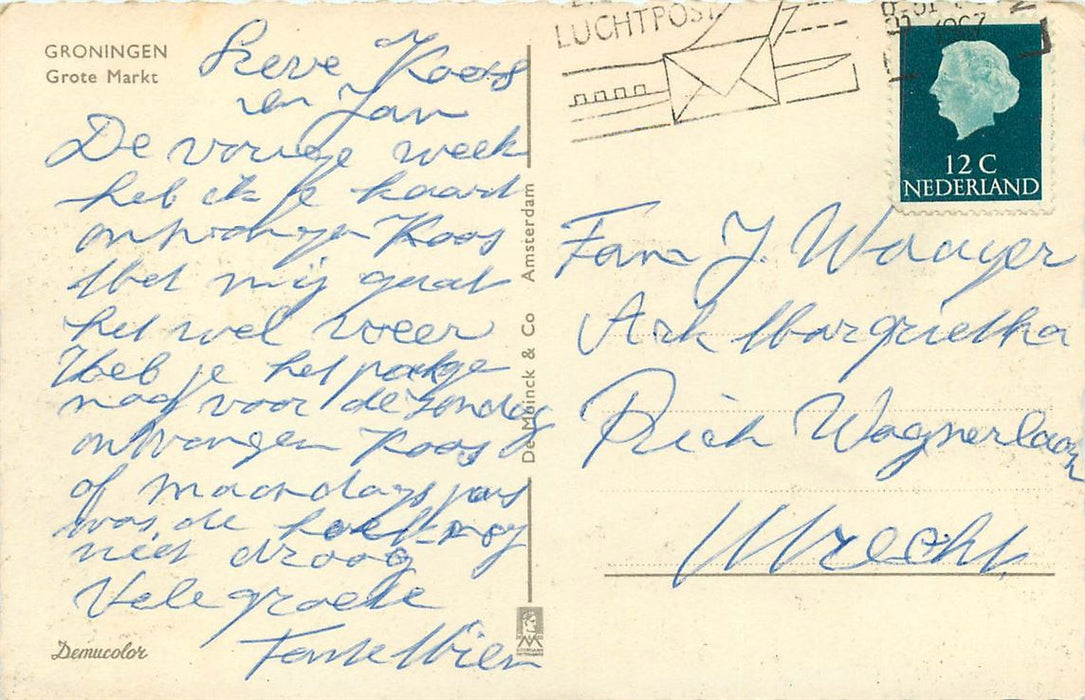 GRONINGEN
Grote Markt
Lieve Koos
en Jan
De vorige week
heb ik je kaart
ontvangen Koos
Met mij gaat
het wel weer
Heb je het pakje
nog voor de zondag
ontvangen Koos
of maandags pas
was de nog
niet droog
Vele groete
Tante Wien
Demucolor
De Muinck & Co Amsterdam
LUCHTPOST
1967
12 C
NEDERLAND
Fam J. Waayer
Ark Margrietha
Rich Wagnerlaan
Utrecht